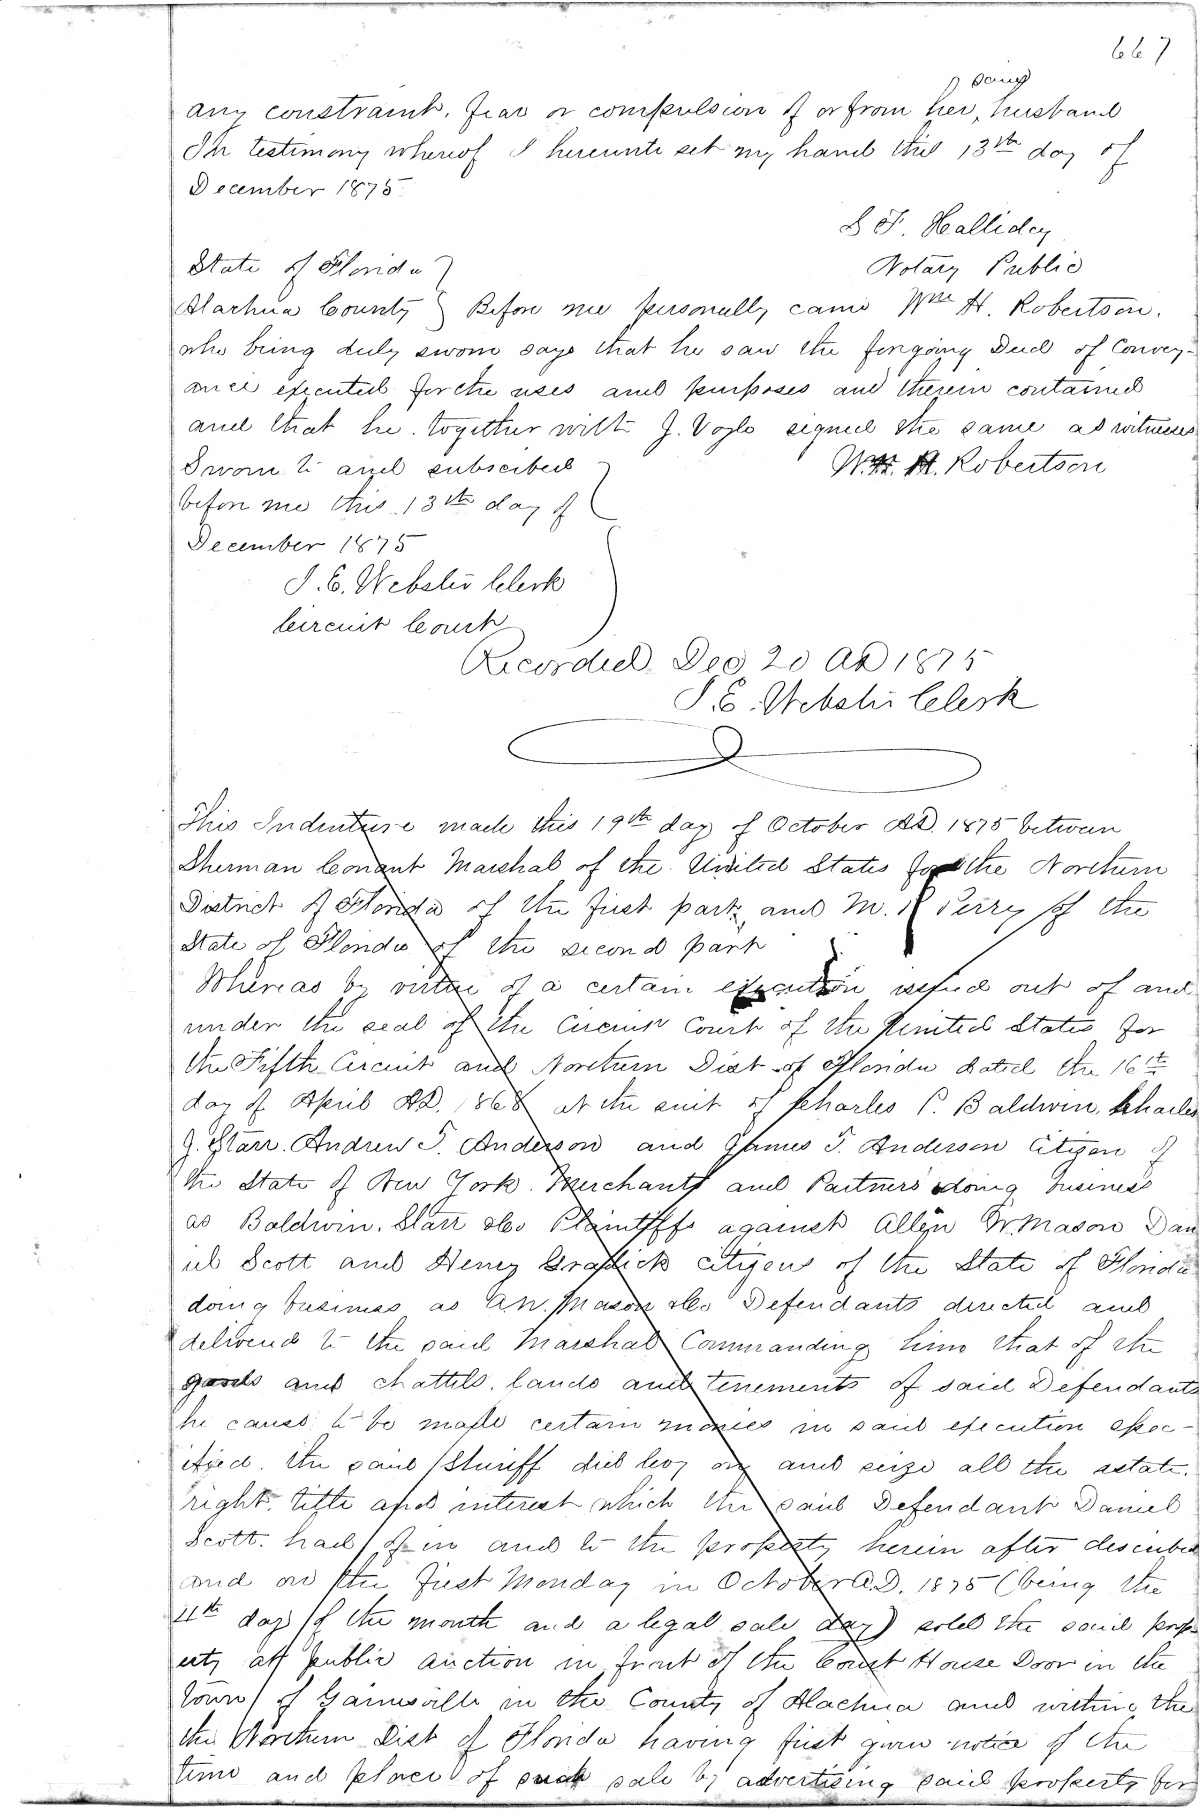 667
said
any constraint, fear or compulsion of or from her, husband
In testimony whereof I hereunto set my hand this 13th day of
December 1875
S F. Halliday
State of Florida
Notary Public
Alachua County } Before me personally came Wm H. Robertson.
who being duly sworn says that he saw the forgoing Deed of Convey-
ance executed for the uses and purposes and therein contained
and that he together with J. Vogle signed the same as witnesses
Sworn to and subscribed
W. H. Robertson
before me this 13th day of
December 1875
J. E. Webster Clerk
Circuit Court
Recorded Dec 20 AD 1875
J. E. Webster Clerk
This Indenture made this 19th day of October AD. 1875 between
Sherman Conant Marshal of the United States for the Northern
District of Florida of the first part, and M. R Perry of the
State of Florida of the second part
Whereas by virtue of a certain execution issued out of and
under the seal of the Circuit Court of the United States for
the Fifth Circuit and Northern Dist of Florida dated the 16th
day of April AD. 1868 at the suit of Charles P. Baldwin, Charles
J. Starr. Andrew T. Anderson and James T. Anderson Citizen of
the State of New York. Merchants and Partners doing business
as Baldwin. Starr & Co Plaintiffs against Allen W. Mason Dan
iel Scott and Henry Gradick citizens of the State of Florida
doing business as A.W. Mason & Co Defendants directed and
delivered to the said Marshal Commanding him that of the
goods and chattels, lands and tenements of said Defendants
he cause to be made certain monies in said execution spec-
ified. the said Sheriff did levy on and seize all the estate.
right, title and interest which the said Defendant Daniel
Scott. had of in and to the property herein after described
and on the first Monday in October A.D. 1875 (being the
4th day of the month and a legal sale day) sold the said prop-
erty at public auction in front of the Court House Door in the
Town of Gainesville in the County of Alachua and within the
the Northern Dist of Florida having first given notice of the
time and place of such sale by advertising said property for